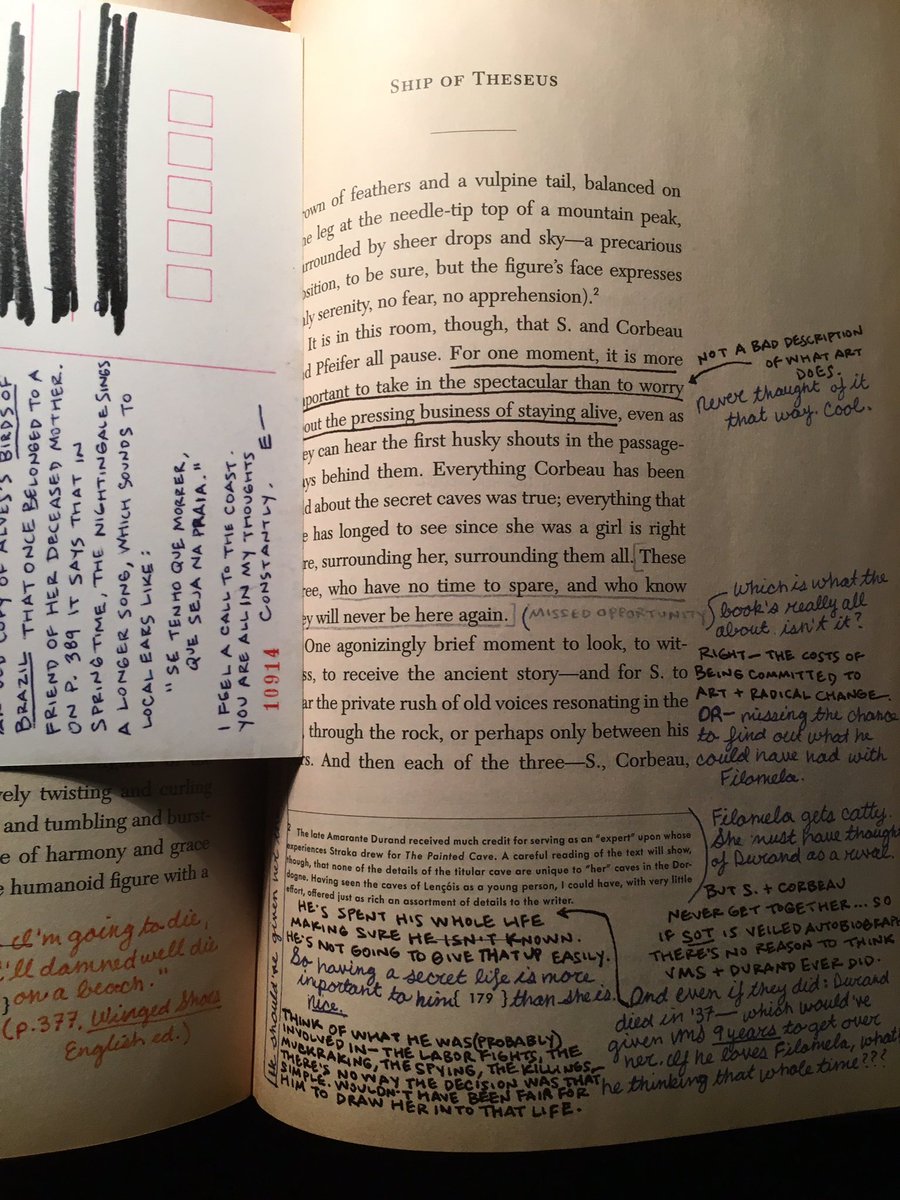 SHIP OF THESEUS
own of feathers and a vulpine tail, balanced on
leg at the needle-tip top of a mountain peak,
rrounded by sheer drops and sky—a precarious
sition, to be sure, but the figure's face expresses
ly serenity, no fear, no apprehension).²
It is in this room, though, that S. and Corbeau
d Pfeifer all pause. For one moment, it is more
portant to take in the spectacular than to worry
out the pressing business of staying alive, even as
ey can hear the first husky shouts in the passage-
ys behind them. Everything Corbeau has been
d about the secret caves was true; everything that
e has longed to see since she was a girl is right
re, surrounding her, surrounding them all. [These
ree, who have no time to spare, and who know
ey will never be here again.] (MISSED OPPORTUNITY)
One agonizingly brief moment to look, to wit-
ss, to receive the ancient story—and for S. to
ar the private rush of old voices resonating in the
, through the rock, or perhaps only between his
rs. And then each of the three—S., Corbeau,
² The late Amarante Durand received much credit for serving as an "expert" upon whose
experiences Straka drew for The Painted Cave. A careful reading of the text will show,
though, that none of the details of the titular cave are unique to "her" caves in the Dor-
dogne. Having seen the caves of Lençóis as a young person, I could have, with very little
effort, offered just as rich an assortment of details to the writer.
{ 179 }
NOT A BAD DESCRIPTION
OF WHAT ART
DOES.
Never thought of it
that way. Cool.
Which is what the
book's really all
about, isn't it?
RIGHT— THE COSTS OF
BEING COMMITTED TO
ART + RADICAL CHANGE.
OR— missing the chance
to find out what he
could have had with
Filomela.
Filomela gets catty.
She must have though
of Durand as a rival.
BUT S. + CORBEAU
NEVER GET TOGETHER... SO
IF SOT IS VEILED AUTOBIOGRAPH
THERE'S NO REASON TO THINK
VMS + DURAND EVER DID.
And even if they did: Durand
died in '37— which would've
given VMS 9 years to get over
her. If he loves Filomela, what
he thinking that whole time???
HE'S SPENT HIS WHOLE LIFE
MAKING SURE HE ISN'T KNOWN.
HE'S NOT GOING TO GIVE THAT UP EASILY.
So having a secret life is more
important to him than she is.
Nice.
THINK OF WHAT HE WAS (PROBABLY)
INVOLVED IN— THE LABOR FIGHTS, THE
MUCKRAKING, THE SPYING, THE KILLINGS—
THERE'S NO WAY THE DECISION WAS THAT
SIMPLE. WOULDN'T HAVE BEEN FAIR FOR
HIM TO DRAW HER INTO THAT LIFE.
He should've given
OLD COPY OF ALVES'S BIRDS OF
BRAZIL THAT ONCE BELONGED TO A
FRIEND OF HER DECEASED MOTHER.
ON P. 389 IT SAYS THAT IN
SPRINGTIME, THE NIGHTINGALE SINGS
A LONGER SONG, WHICH SOUNDS TO
LOCAL EARS LIKE:
"SE TENHO QUE MORRER,
QUE SEJA NA PRAIA."
I FEEL A CALL TO THE COAST.
YOU ARE ALL IN MY THOUGHTS
CONSTANTLY. E—
10914
vely twisting and curling
and tumbling and burst-
e of harmony and grace
e humanoid figure with a
I'm going to die,
I'll damned well die
on a beach."
(p. 377, Winged Shoes
English ed.)